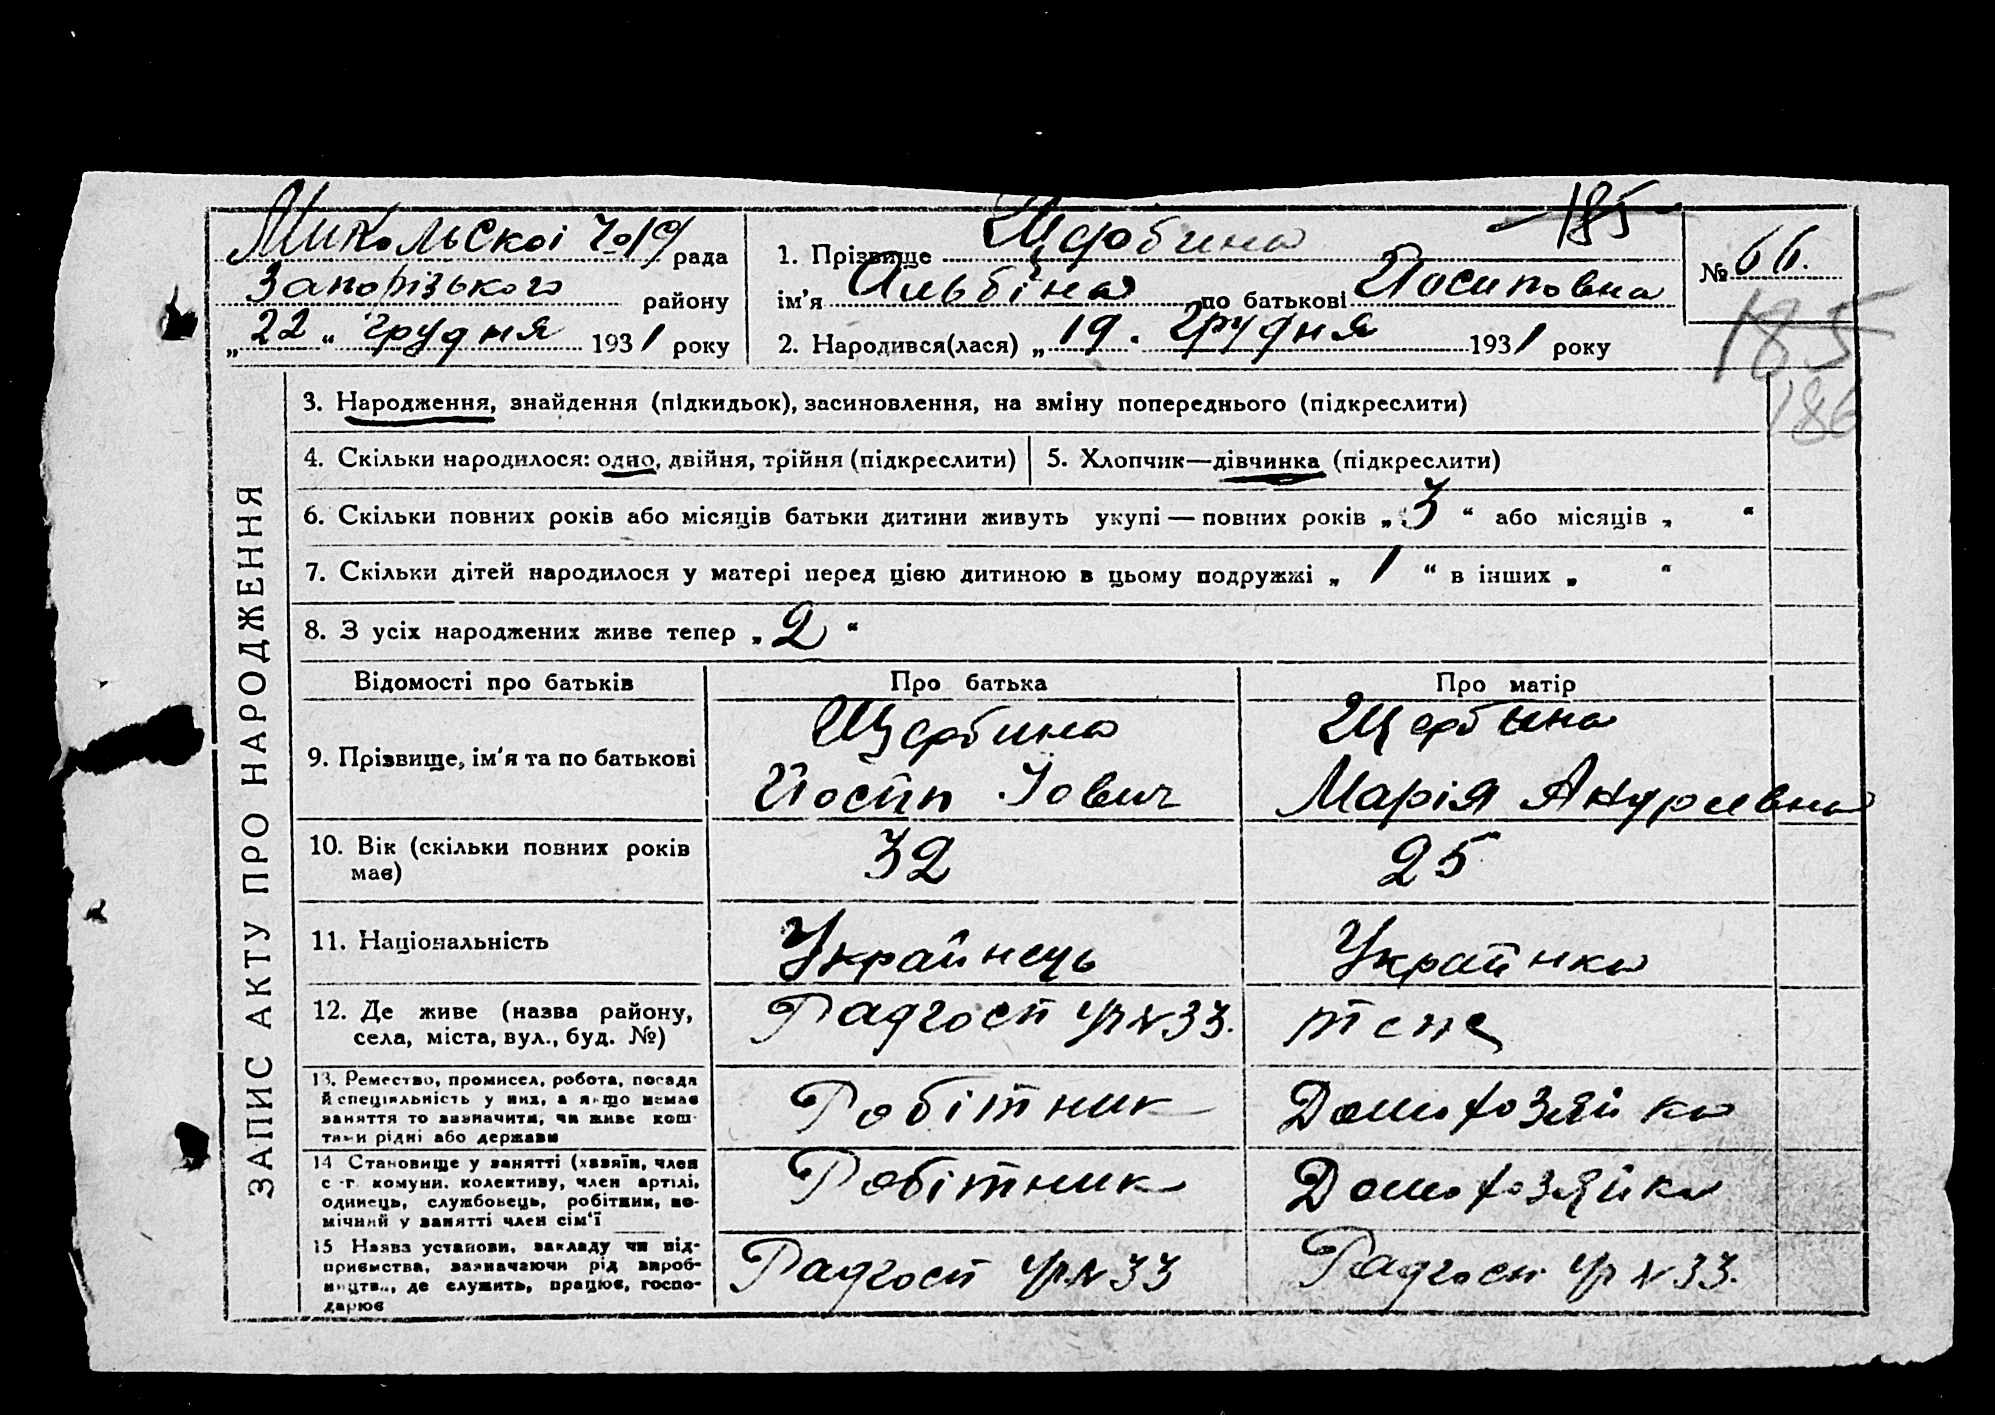 185
Микольскоі рада
Запорізького району
„22“ грудня 1931 року
1. Прізвище Щербина
ім'я Альбіна по батькові Йосиповна
2. Народився(лася) „19. Грудня 1931 року
№ 66.
185
186
ЗАПИС АКТУ ПРО НАРОДЖЕННЯ
3. Народження, знайдення (підкидьок), засиновлення, на зміну попереднього (підкреслити)
4. Скільки народилося: одно, двійня, трійня (підкреслити)
5. Хлопчик—дівчинка (підкреслити)
6. Скільки повних років або місяців батьки дитини живуть укупі — повних років „3“ або місяців „ “
7. Скільки дітей народилося у матері перед цією дитиною в цьому подружжі „1“ в інших „ “
8. З усіх народжених живе тепер „2“
Відомості про батьків
Про батька
Про матір
9. Прізвище, ім'я та по батькові
Щербина
Йосип Іович
Щербина
Марія Андреевна
10. Вік (скільки повних років
має)
32
25
11. Національність
Українець
Українка
12. Де живе (назва району,
села, міста, вул., буд. №)
Радгосп №33.
теж
13. Ремество, промисел, робота, посада
й спеціяльність у них, а якщо немає
заняття то зазначити, чи живе кош-
тами рідні або держави
Робітник
Домохозяйка
14 Становище у занятті (хазяїн, член
с.-г. комуни, колективу, член артілі,
одинець, службовець, робітник, по-
мічний у занятті член сім'ї
Робітник
Домохозяйка
15 Назва установи, закладу чи під-
приємства, зазначаючи рід вироб-
ництва, де служить, працює, госпо-
дарює
Радгосп №33
Радгосп №33.